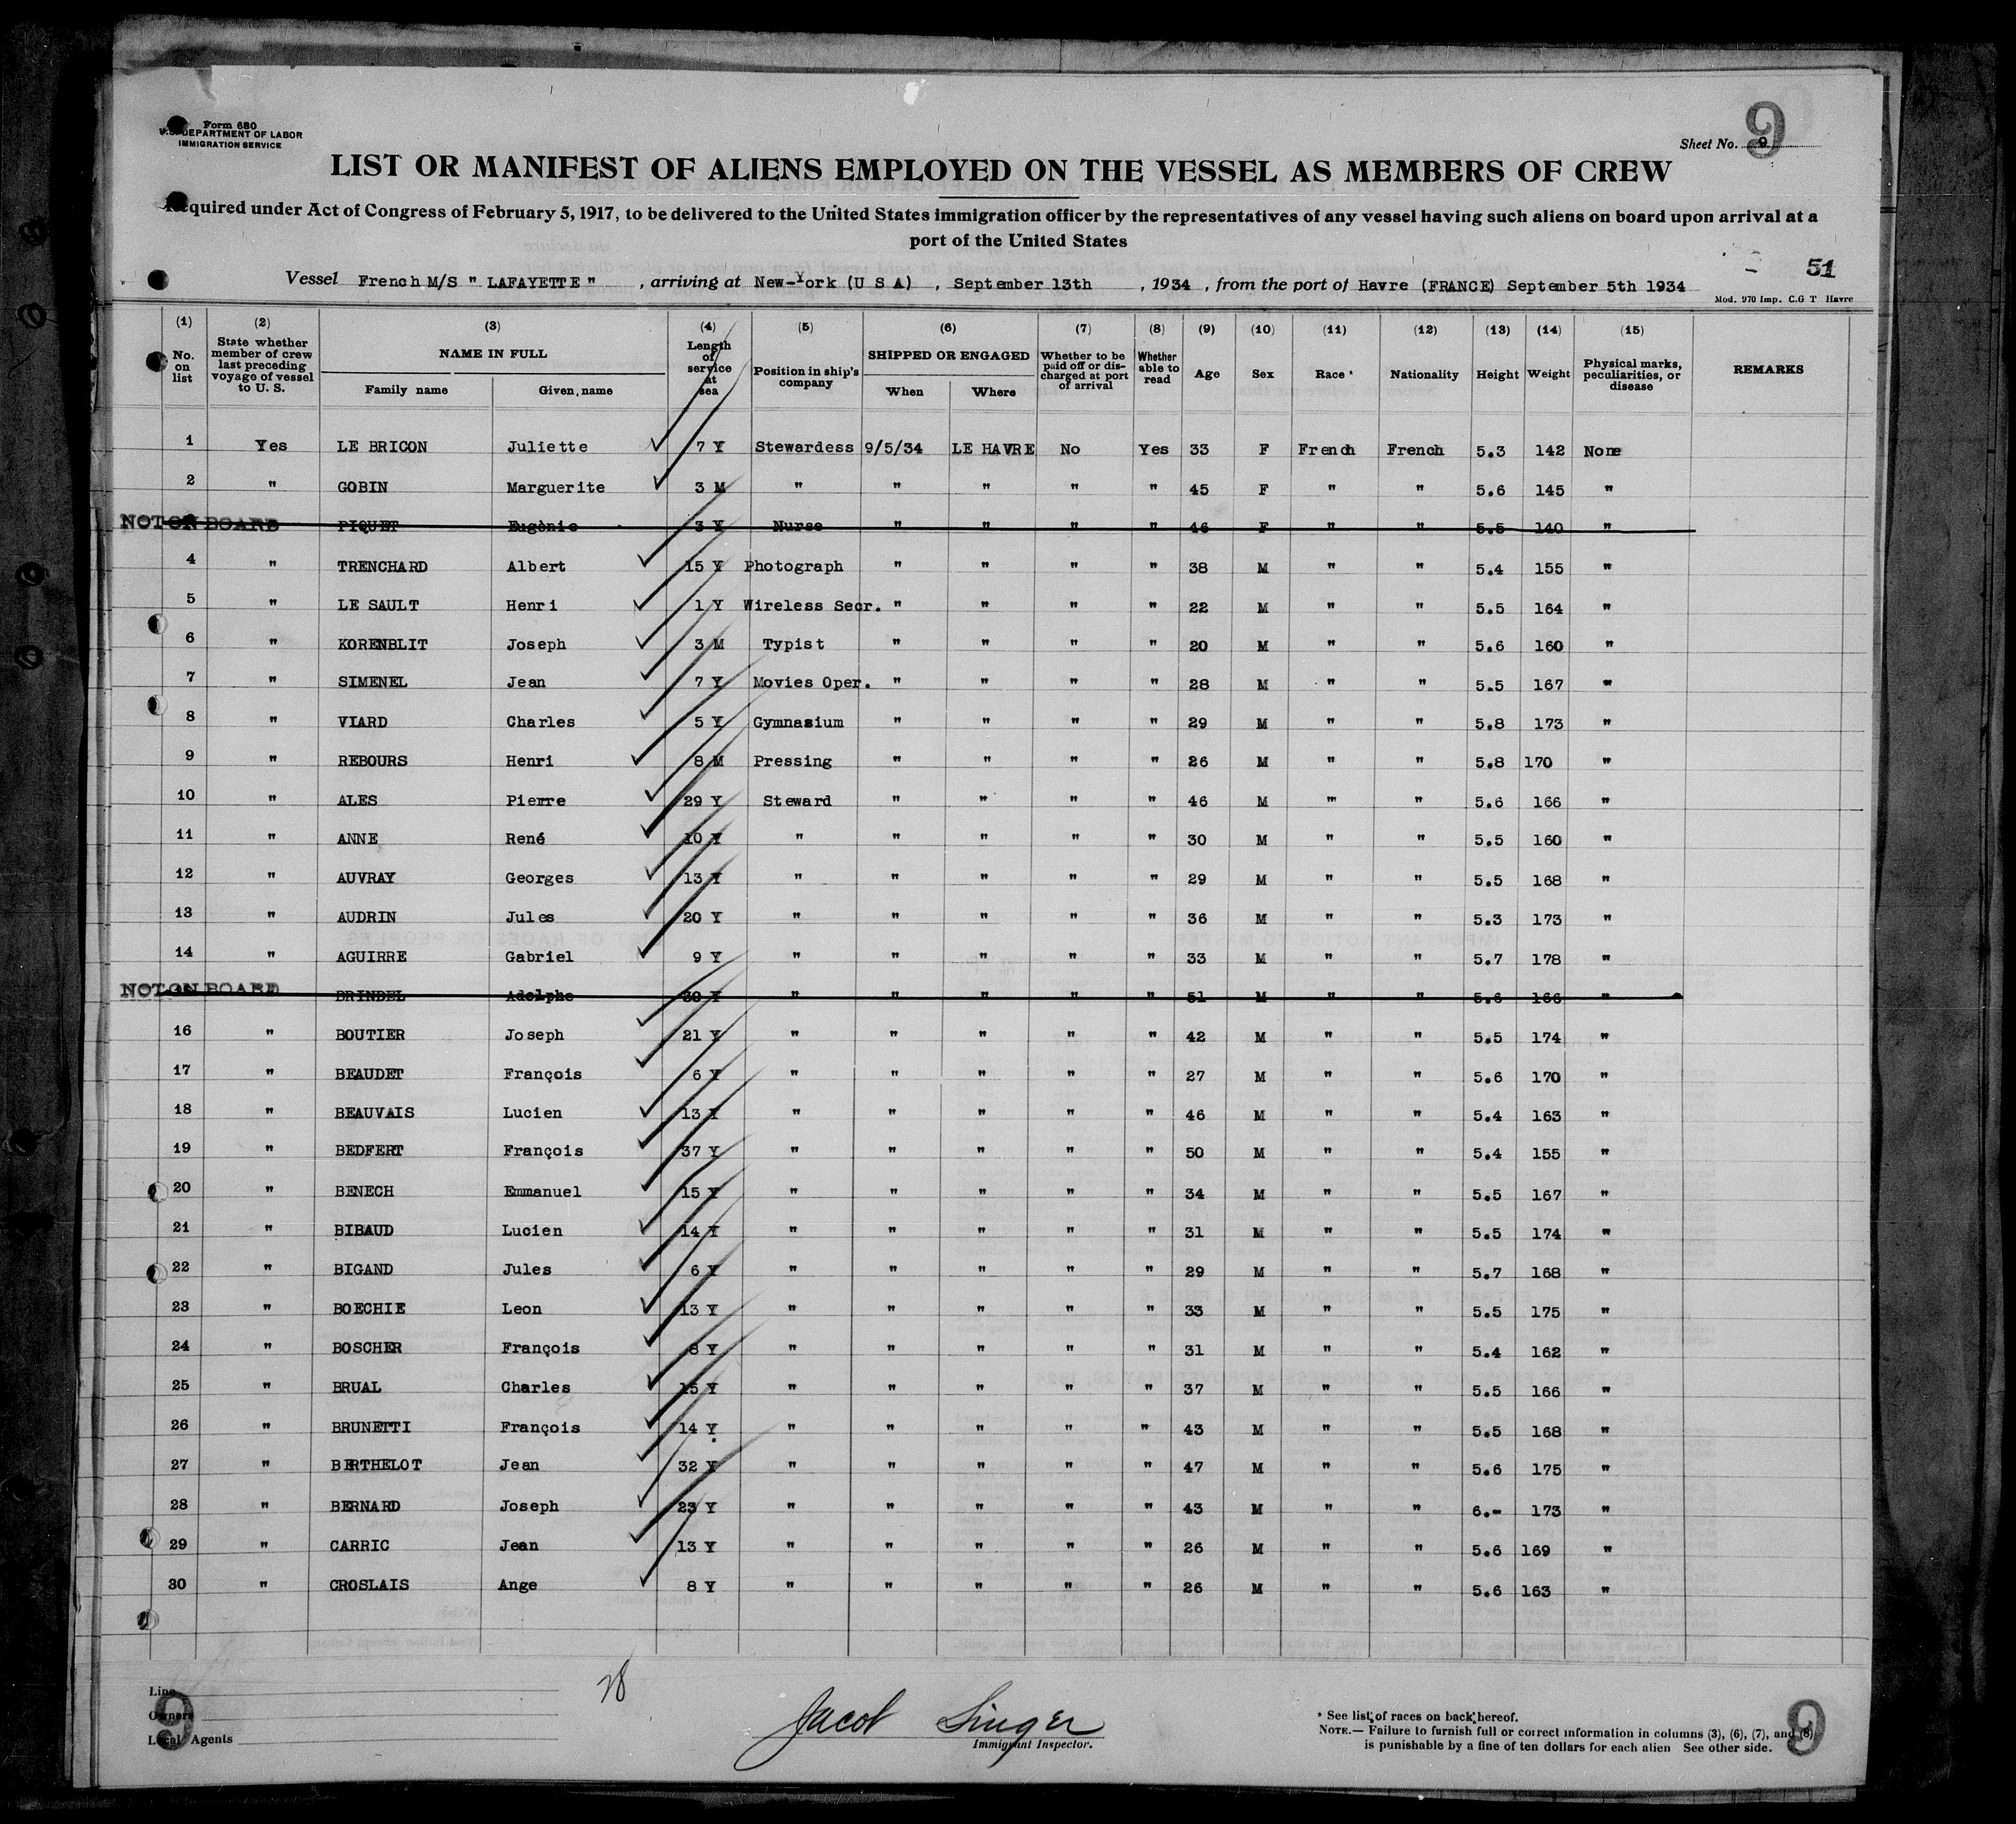 Form 680
U.S. DEPARTMENT OF LABOR
IMMIGRATION SERVICE
9
Sheet No. 9
LIST OR MANIFEST OF ALIENS EMPLOYED ON THE VESSEL AS MEMBERS OF CREW
Required under Act of Congress of February 5, 1917, to be delivered to the United States immigration officer by the representatives of any vessel having such aliens on board upon arrival at a
port of the United States
51
Vessel French M/S " LAFAYETTE " , arriving at New-York (U S A) , September 13th , 1934 , from the port of Havre (FRANCE) September 5th 1934
Mod. 970 Imp. C.G T Havre
(1) No. on list (2) State whether member of crew last preceding voyage of vessel to U. S. (3) NAME IN FULL Family name Given name (4) Length of service at sea (5) Position in ship's company (6) SHIPPED OR ENGAGED When Where (7) Whether to be paid off or discharged at port of arrival (8) Whether able to read (9) Age (10) Sex (11) Race * (12) Nationality (13) Height (14) Weight (15) Physical marks, peculiarities, or disease REMARKS
1 Yes LE BRICON Juliette 7 Y Stewardess 9/5/34 LE HAVRE No Yes 33 F French French 5.3 142 None
2 " GOBIN Marguerite 3 M " " " " " 45 F " " 5.6 145 "
NOT ON BOARD PIQUET Eugènie 3 Y Nurse " " " " 46 F " " 5.5 140 "
4 " TRENCHARD Albert 15 Y Photograph " " " " 38 M " " 5.4 155 "
5 " LE SAULT Henri 1 Y Wireless Secr. " " " " 22 M " " 5.5 164 "
6 " KORENBLIT Joseph 3 M Typist " " " " 20 M " " 5.6 160 "
7 " SIMENEL Jean 7 Y Movies Oper. " " " " 28 M " " 5.5 167 "
8 " VIARD Charles 5 Y Gymnasium " " " " 29 M " " 5.8 173 "
9 " REBOURS Henri 8 M Pressing " " " " 26 M " " 5.8 170 "
10 " ALES Pierre 29 Y Steward " " " " 46 M " " 5.6 166 "
11 " ANNE René 10 Y " " " " " 30 M " " 5.5 160 "
12 " AUVRAY Georges 13 Y " " " " " 29 M " " 5.5 168 "
13 " AUDRIN Jules 20 Y " " " " " 36 M " " 5.3 173 "
14 " AGUIRRE Gabriel 9 Y " " " " " 33 M " " 5.7 178 "
NOT ON BOARD BRINDEL Adolphe 30 Y " " " " " 51 M " " 5.6 166 "
16 " BOUTIER Joseph 21 Y " " " " " 42 M " " 5.5 174 "
17 " BEAUDET François 6 Y " " " " " 27 M " " 5.6 170 "
18 " BEAUVAIS Lucien 13 Y " " " " " 46 M " " 5.4 163 "
19 " BEDFERT François 37 Y " " " " " 50 M " " 5.4 155 "
20 " BENECH Emmanuel 15 Y " " " " " 34 M " " 5.5 167 "
21 " BIBAUD Lucien 14 Y " " " " " 31 M " " 5.5 174 "
22 " BIGAND Jules 6 Y " " " " " 29 M " " 5.7 168 "
23 " BOECHIE Leon 13 Y " " " " " 33 M " " 5.5 175 "
24 " BOSCHER François 8 Y " " " " " 31 M " " 5.4 162 "
25 " BRUAL Charles 15 Y " " " " " 37 M " " 5.5 166 "
26 " BRUNETTI François 14 Y " " " " " 43 M " " 5.5 168 "
27 " BERTHELOT Jean 32 Y " " " " " 47 M " " 5.6 175 "
28 " BERNARD Joseph 23 Y " " " " " 43 M " " 6.- 173 "
29 " CARRIC Jean 13 Y " " " " " 26 M " " 5.6 169 "
30 " CROSLAIS Ange 8 Y " " " " " 26 M " " 5.6 163 "
28
Line
Owners
Local Agents
9
Jacob Singer
Immigrant Inspector.
* See list of races on back hereof.
NOTE.— Failure to furnish full or correct information in columns (3), (6), (7), and (8)
is punishable by a fine of ten dollars for each alien See other side.
9